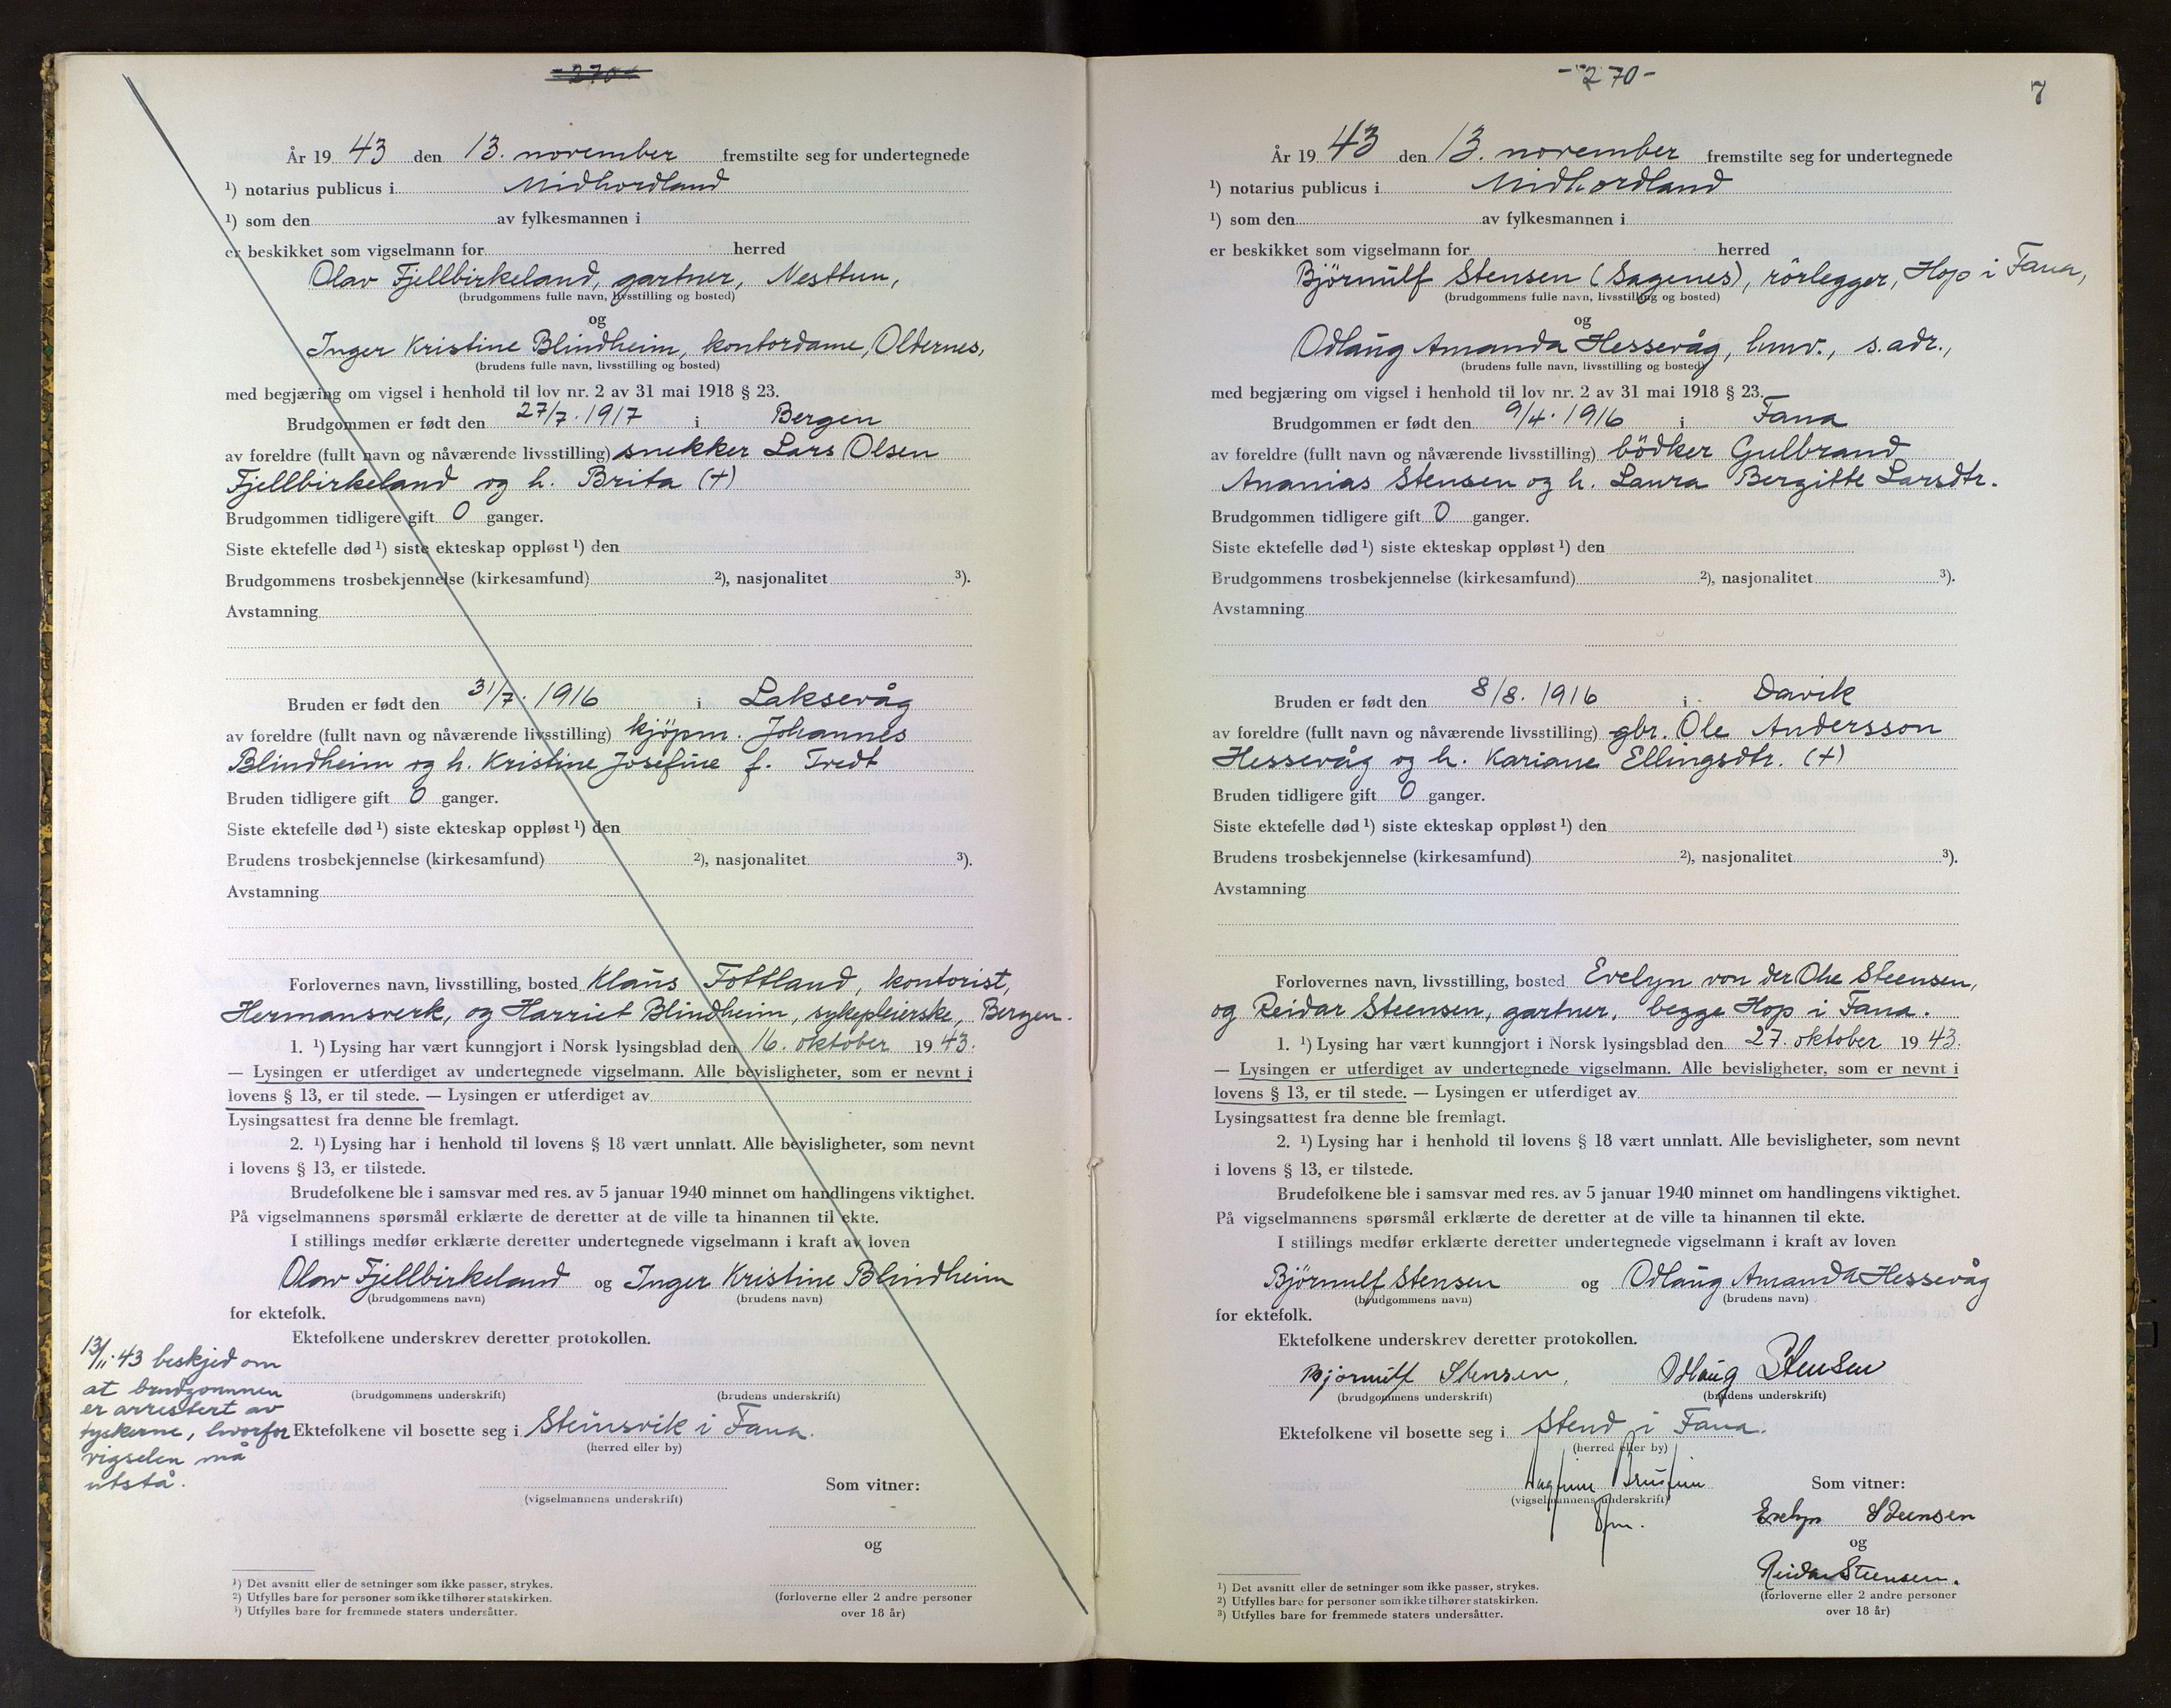 -270-
År 19 43 den 13. november fremstilte seg for undertegnede
¹) notarius publicus i Midhordland
¹) som den av fylkesmannen i
er beskikket som vigselmann for herred
Olav Fjellbirkeland, gartner, Nesttun,
(brudgommens fulle navn, livsstilling og bosted)
og
Inger Kristine Blindheim, kontordame, Oldernes,
(brudens fulle navn, livsstilling og bosted)
med begjæring om vigsel i henhold til lov nr. 2 av 31 mai 1918 § 23.
Brudgommen er født den 27/7. 1917 i Bergen
av foreldre (fullt navn og nåværende livsstilling) snekker Lars Olsen
Fjellbirkeland og h. Brita (+)
Brudgommen tidligere gift 0 ganger.
Siste ektefelle død ¹) siste ekteskap oppløst ¹) den
Brudgommens trosbekjennelse (kirkesamfund) ²), nasjonalitet ³).
Avstamning
Bruden er født den 31/7. 1916 i Laksevåg
av foreldre (fullt navn og nåværende livsstilling) kjöpm. Johannes
Blindheim og h. Kristine Josefine f. Tredt
Bruden tidligere gift 0 ganger.
Siste ektefelle død ¹) siste ekteskap oppløst ¹) den
Brudens trosbekjennelse (kirkesamfund) ²), nasjonalitet ³).
Avstamning
Forlovernes navn, livsstilling, bosted Klaus Tottland, kontorist,
Hermansverk, og Harriet Blindheim, sykepleierske, Bergen.
1. ¹) Lysing har vært kunngjort i Norsk lysingsblad den 16. oktober 19 43.
— Lysingen er utferdiget av undertegnede vigselmann. Alle bevisligheter, som er nevnt i
lovens § 13, er til stede. — Lysingen er utferdiget av
Lysingsattest fra denne ble fremlagt.
2. ¹) Lysing har i henhold til lovens § 18 vært unnlatt. Alle bevisligheter, som nevnt
i lovens § 13, er tilstede.
Brudefolkene ble i samsvar med res. av 5 januar 1940 minnet om handlingens viktighet.
På vigselmannens spørsmål erklærte de deretter at de ville ta hinannen til ekte.
I stillings medfør erklærte deretter undertegnede vigselmann i kraft av loven
Olav Fjellbirkeland og Inger Kristine Blindheim
(brudgommens navn) (brudens navn)
for ektefolk.
Ektefolkene underskrev deretter protokollen.
13/11.43 beskjed om
at brudgommen
er arrestert av
tyskerne, hvorfor
vigselen må
utstå.
(brudgommens underskrift) (brudens underskrift)
Ektefolkene vil bosette seg i Steinsvik i Fana.
(herred eller by)
Som vitner:
(vigselmannens underskrift)
og
¹) Det avsnitt eller de setninger som ikke passer, strykes.
²) Utfylles bare for personer som ikke tilhører statskirken.
³) Utfylles bare for fremmede staters undersåtter.
(forloverne eller 2 andre personer
over 18 år)
-270-
7
År 19 43 den 13. november fremstilte seg for undertegnede
¹) notarius publicus i Midhordland
¹) som den av fylkesmannen i
er beskikket som vigselmann for herred
Björnulf Stensen (Sagenes), rörlegger, Hop i Fana,
(brudgommens fulle navn, livsstilling og bosted)
og
Odlaug Amanda Hessevåg, hmv., s. adr.,
(brudens fulle navn, livsstilling og bosted)
med begjæring om vigsel i henhold til lov nr. 2 av 31 mai 1918 § 23.
Brudgommen er født den 9/4. 1916 i Fana
av foreldre (fullt navn og nåværende livsstilling) bödker Gulbrand
Ananias Stensen og h. Laura Bergitte Larsdtr.
Brudgommen tidligere gift 0 ganger.
Siste ektefelle død ¹) siste ekteskap oppløst ¹) den
Brudgommens trosbekjennelse (kirkesamfund) ²), nasjonalitet ³).
Avstamning
Bruden er født den 8/8. 1916 i Davik
av foreldre (fullt navn og nåværende livsstilling) gbr. Ole Andersson
Hessevåg og h. Kariane Ellingsdtr. (+)
Bruden tidligere gift 0 ganger.
Siste ektefelle død ¹) siste ekteskap oppløst ¹) den
Brudens trosbekjennelse (kirkesamfund) ²), nasjonalitet ³).
Avstamning
Forlovernes navn, livsstilling, bosted Evelyn von der Ohe Steensen,
og Reidar Steensen, gartner, begge Hop i Fana.
1. ¹) Lysing har vært kunngjort i Norsk lysingsblad den 27. oktober 19 43.
— Lysingen er utferdiget av undertegnede vigselmann. Alle bevisligheter, som er nevnt i
lovens § 13, er til stede. — Lysingen er utferdiget av
Lysingsattest fra denne ble fremlagt.
2. ¹) Lysing har i henhold til lovens § 18 vært unnlatt. Alle bevisligheter, som nevnt
i lovens § 13, er tilstede.
Brudefolkene ble i samsvar med res. av 5 januar 1940 minnet om handlingens viktighet.
På vigselmannens spørsmål erklærte de deretter at de ville ta hinannen til ekte.
I stillings medfør erklærte deretter undertegnede vigselmann i kraft av loven
Björnulf Stensen og Odlaug Amanda Hessevåg
(brudgommens navn) (brudens navn)
for ektefolk.
Ektefolkene underskrev deretter protokollen.
Bjørnulf Stensen, Odlaug Stensen
(brudgommens underskrift) (brudens underskrift)
Ektefolkene vil bosette seg i Stend i Fana.
(herred eller by)
Som vitner:
(vigselmannens underskrift)
Evelyn Steensen
og
Reidar Steensen.
¹) Det avsnitt eller de setninger som ikke passer, strykes.
²) Utfylles bare for personer som ikke tilhører statskirken.
³) Utfylles bare for fremmede staters undersåtter.
(forloverne eller 2 andre personer
over 18 år)